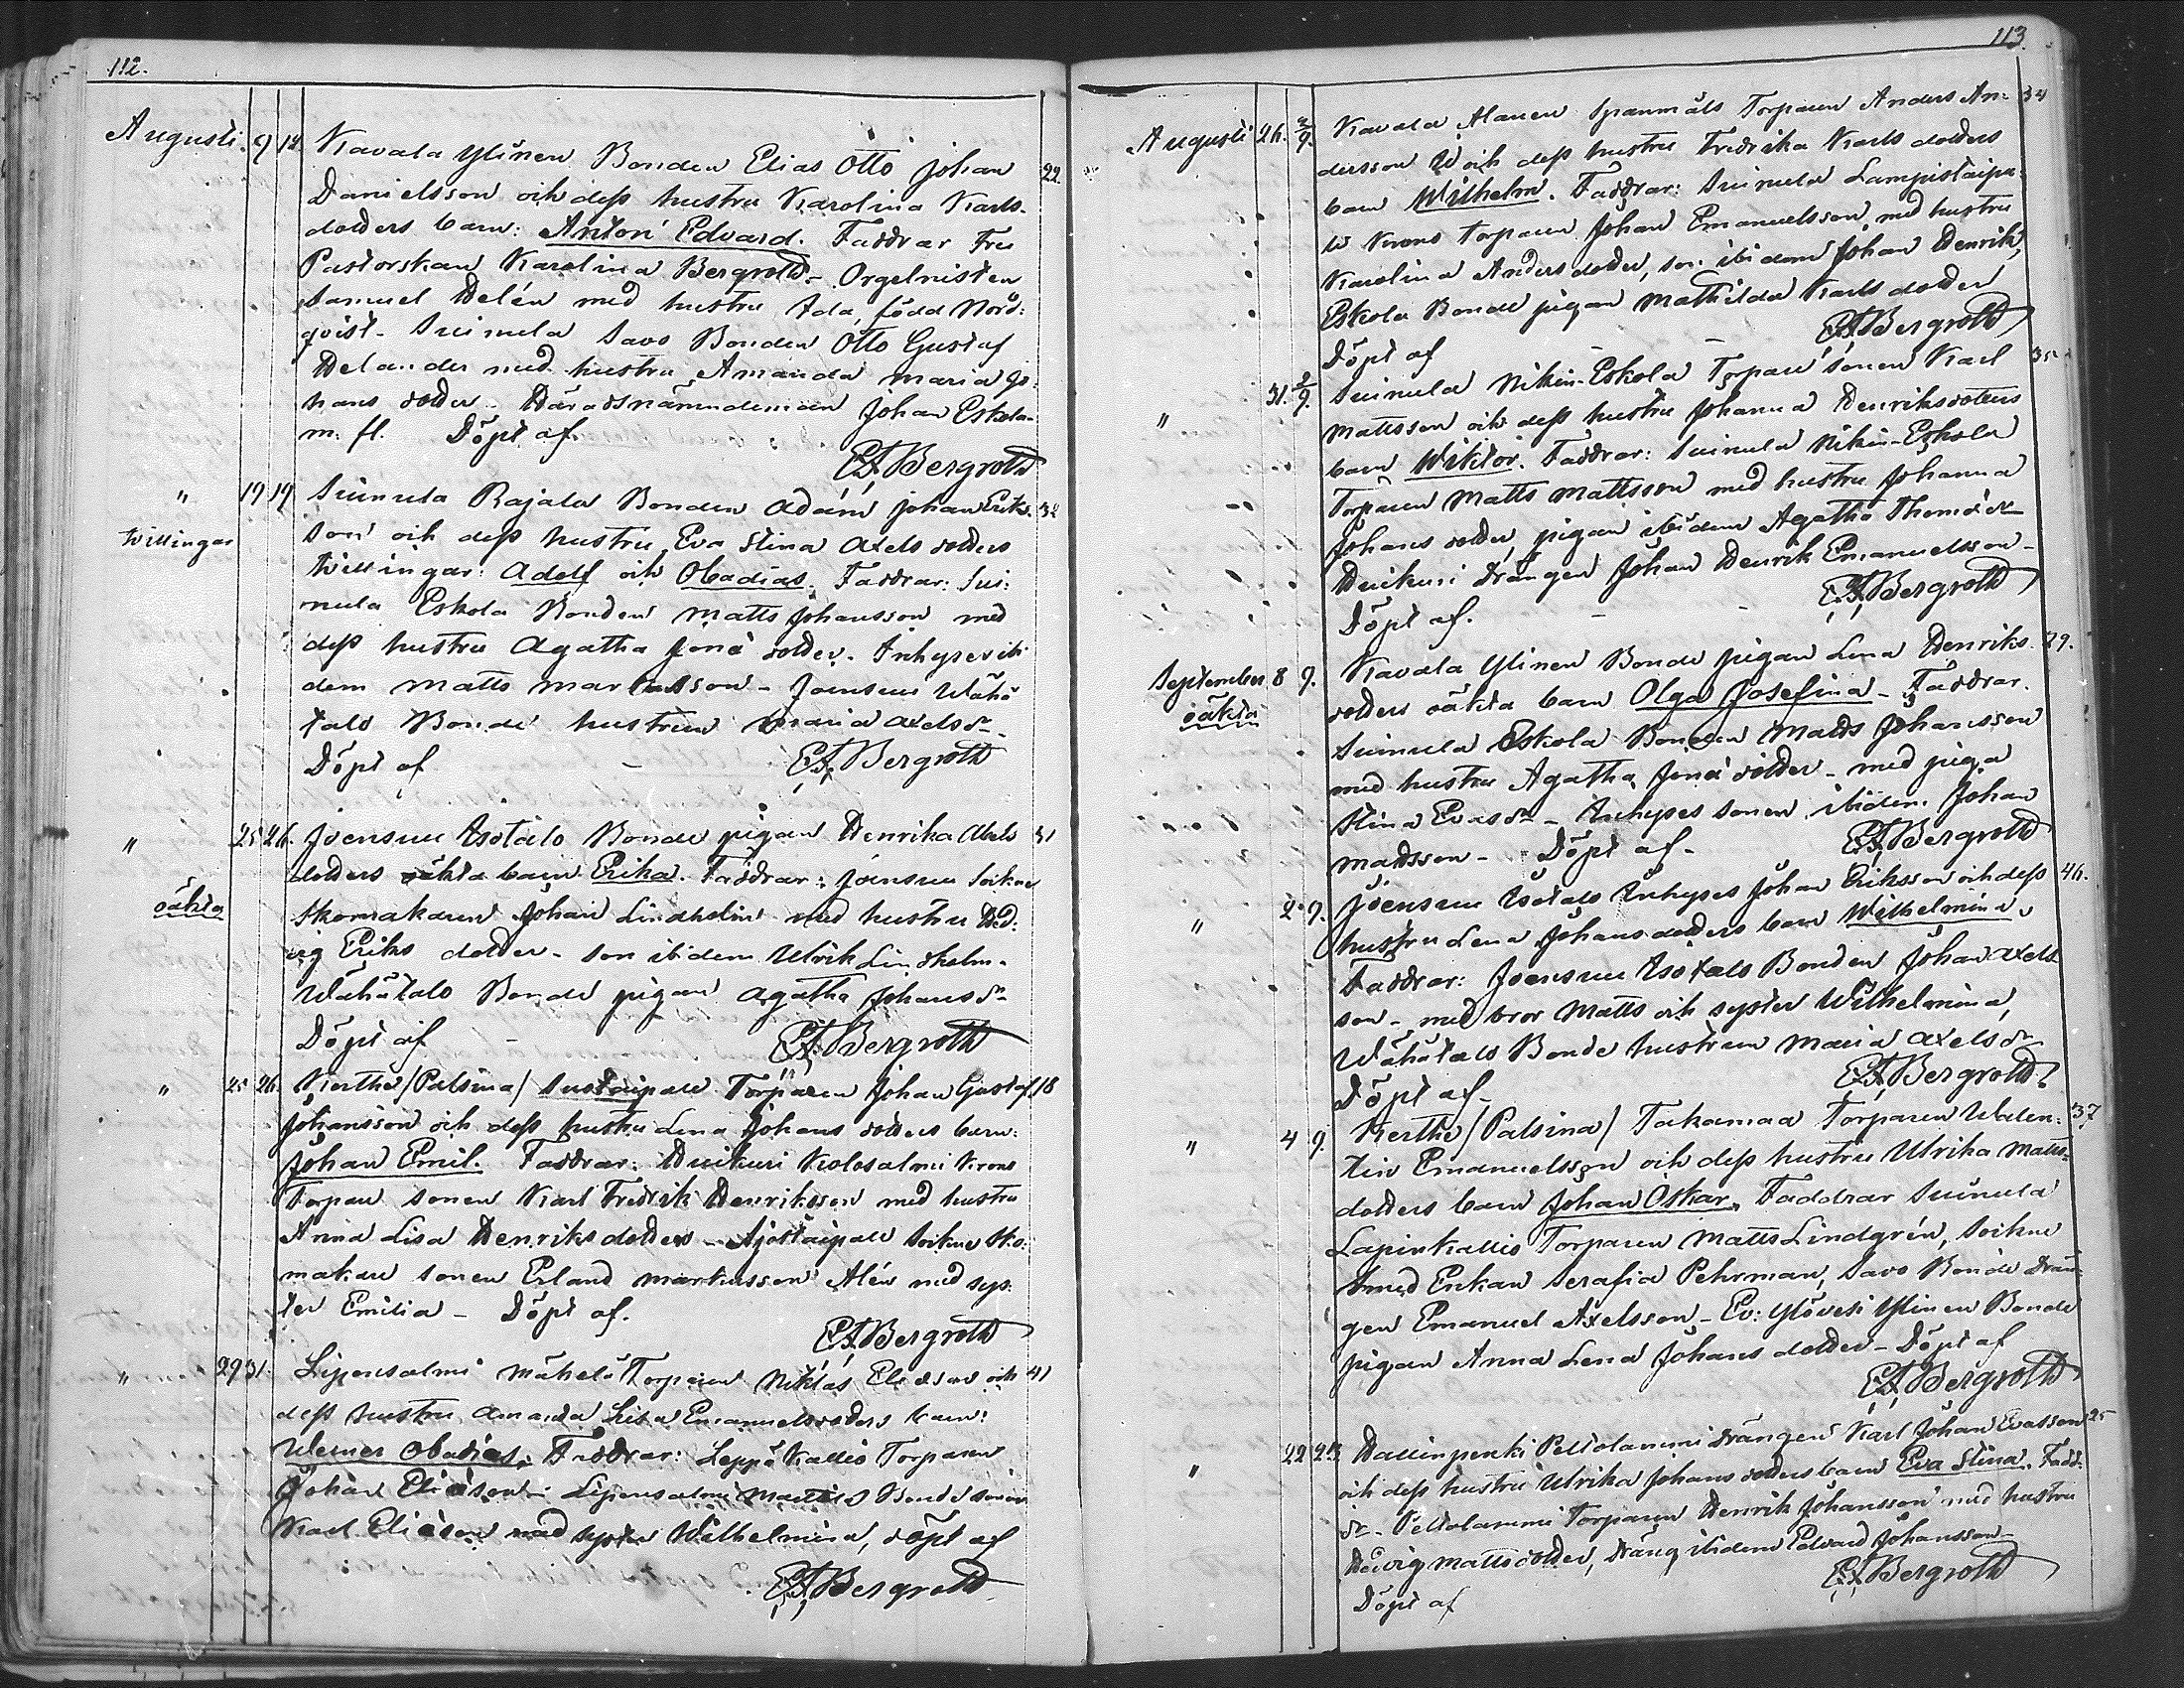 112.
Augusti. 9 12. Kavala Ylinen Bonden Elias Otto Johan 22.
Danielsson och dess hustru Karolina Karls-
dotters barn: Anton Edvard. Faddrar Fru
Pastorskan Karolina Bergroth - Orgelnisten
Samuel Helén med hustru Ida, född Nord:
qvist - Suinula Savo Bonden Otto Gustaf
Helander med hustru Amanda Maria Jo-
hans dotter - Häradsnämndeman Johan Eskola
m. fl. Döpt af.
E.A. Bergroth
" 19 19 Suinula Rajala Bonden Adam Johan Eriks- 32
tvillingar son och dess hustru Eva Stina Axels dotters
tvillingar: Adolf och Obadias. Faddrar: Sui-
nula Eskola Bonden Matts Johansson med
dess hustru Agatha Jona dotter. Inhyses ibi
dem Matts Markusson - Joensuu Wähä
talo Bonde hustrun Maria Axels dr.
Döpt af - E.A. Bergroth
" 25 26. Joensuu Isotalo Bonde pigan Henrika Abels 31
dotters oäkta barn Erika. Faddrar: Joensuu Sockne
oäkta
Skomakaren Johan Lindholm med hustru Hed:
vig Eriks dotter - son ibidem Ulrik Lindholm -
Wähätalo Bonde pigan Agatha Johans dr
Döpt af - E.A. Bergroth
" 25 26. Kertte/Palsina/ Sustaipale Torparen Johan Gustaf 18
Johansson och dess hustru Lena Johans dotters barn:
Johan Emil. Faddrar: Huikuri Kolosalmi Krono
Torpare sonen Karl Fredrik Henriksson med hustru
Anna Lisa Henriks dotter - Ajostaipale Sockne Sko:
makare sonen Erland Markusson Alén med sys:
ter Emilia - Döpt af.
E.A. Bergroth
" 29 31. Liponsalmi Mäkelä Torparen Niklas Eliasson och 41
dess hustru Amanda Lisa Emanuelsdotters barn:
Werner Obadias. Faddrar: Leppäkallio Torparen
Johan Eliasson - Liponsalmi Bonde sonen
Karl Eliasson med syster Wilhelmina, döpt af
E.A. Bergroth
113.
Augusti 26. 2/9. Kavala Alanen Spanmåls Torparen Anders An- 34
dersson och dess hustru Fredrika Karls dotters
barn Wilhelm. Faddrar: Suinula Lampistaipa-
le Krono Torparen Johan Emanuelsson med hustru
Karolina Anders dotter, son ibidem Johan Henrik,
Eskola Bonde pigan Mathilda Karls dotter
Döpt af - E.A. Bergroth
" 31. 2/9. Suinula Nikin-Eskola Torpare sonen Karl 35
Mattsson och dess hustru Johanna Henriksdotters
barn Wiktor. Faddrar: Suinula Nikin-Eskola
Torparen Matts Mattsson med hustru Johanna
Johans dotter, pigan ibidem Agatha Thomä dr
Huikuri drängen Johan Henrik Emanuelsson -
Döpt af. - E.A. Bergroth
September 8 9. Kavala Ylinen Bonde pigan Lena Henriks- 29.
oäkta dotters oäkta barn Olga Josefina - Faddrar.
Suinula Eskola Bonden Matts Johansson
med hustru Agatha Jona dotter - med piga
Stina Evas dr - Inhyses sonen ibidem Johan
Mattsson - Döpt af - E.A. Bergroth
" 2. 9. Joensuu Isotalo Inhyses Johan Eriksson och dess 46.
hustru Lena Johans dotters barn Wilhelmina.
Faddrar: Joensuu Isotalo Bonden Johan Axels
son - med bror Matts och syster Wilhelmina,
Wähätalo Bonde hustrun Maria Axels dr
Döpt af - E.A. Bergroth
" 4 9. Kertte/Palsina/ Takamaa Torparen Walen- 37
tin Emanuelsson och dess hustru Ulrika Matts-
dotters barn Johan Oskar. Faddrar Suinula
Lapinkallio Torparen Matts Lindgrén, Sockne
Enkan Serafia Pehrman, Savo Bonde drän:
gen Emanuel Axelsson - Ev: Ylövesi Ylinen Bonde
pigan Anna Lena Johans dotter - Döpt af
E.A. Bergroth
" 22 23 Hallinpenki Peltolammi drängen Karl Johan Evasson 25
och dess hustru Ulrika Johans dotters barn Eva Stina. Fadd-
r - Peltolammi Torparen Henrik Johansson med hustru
Hedvig Matts dotter, dräng ibidem Edvard Johansson -
Döpt af E.A. Bergroth